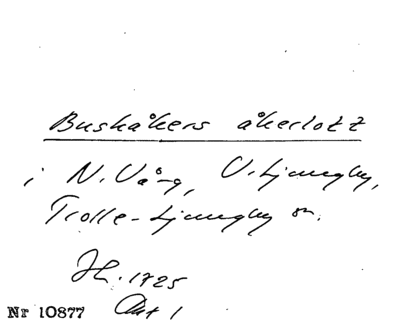 Bushåkers åkerlott
i N. Vång, V. Ljungby,
Trolle-Ljungby sn.
JH. 1725
Akt 1
Nr 10877